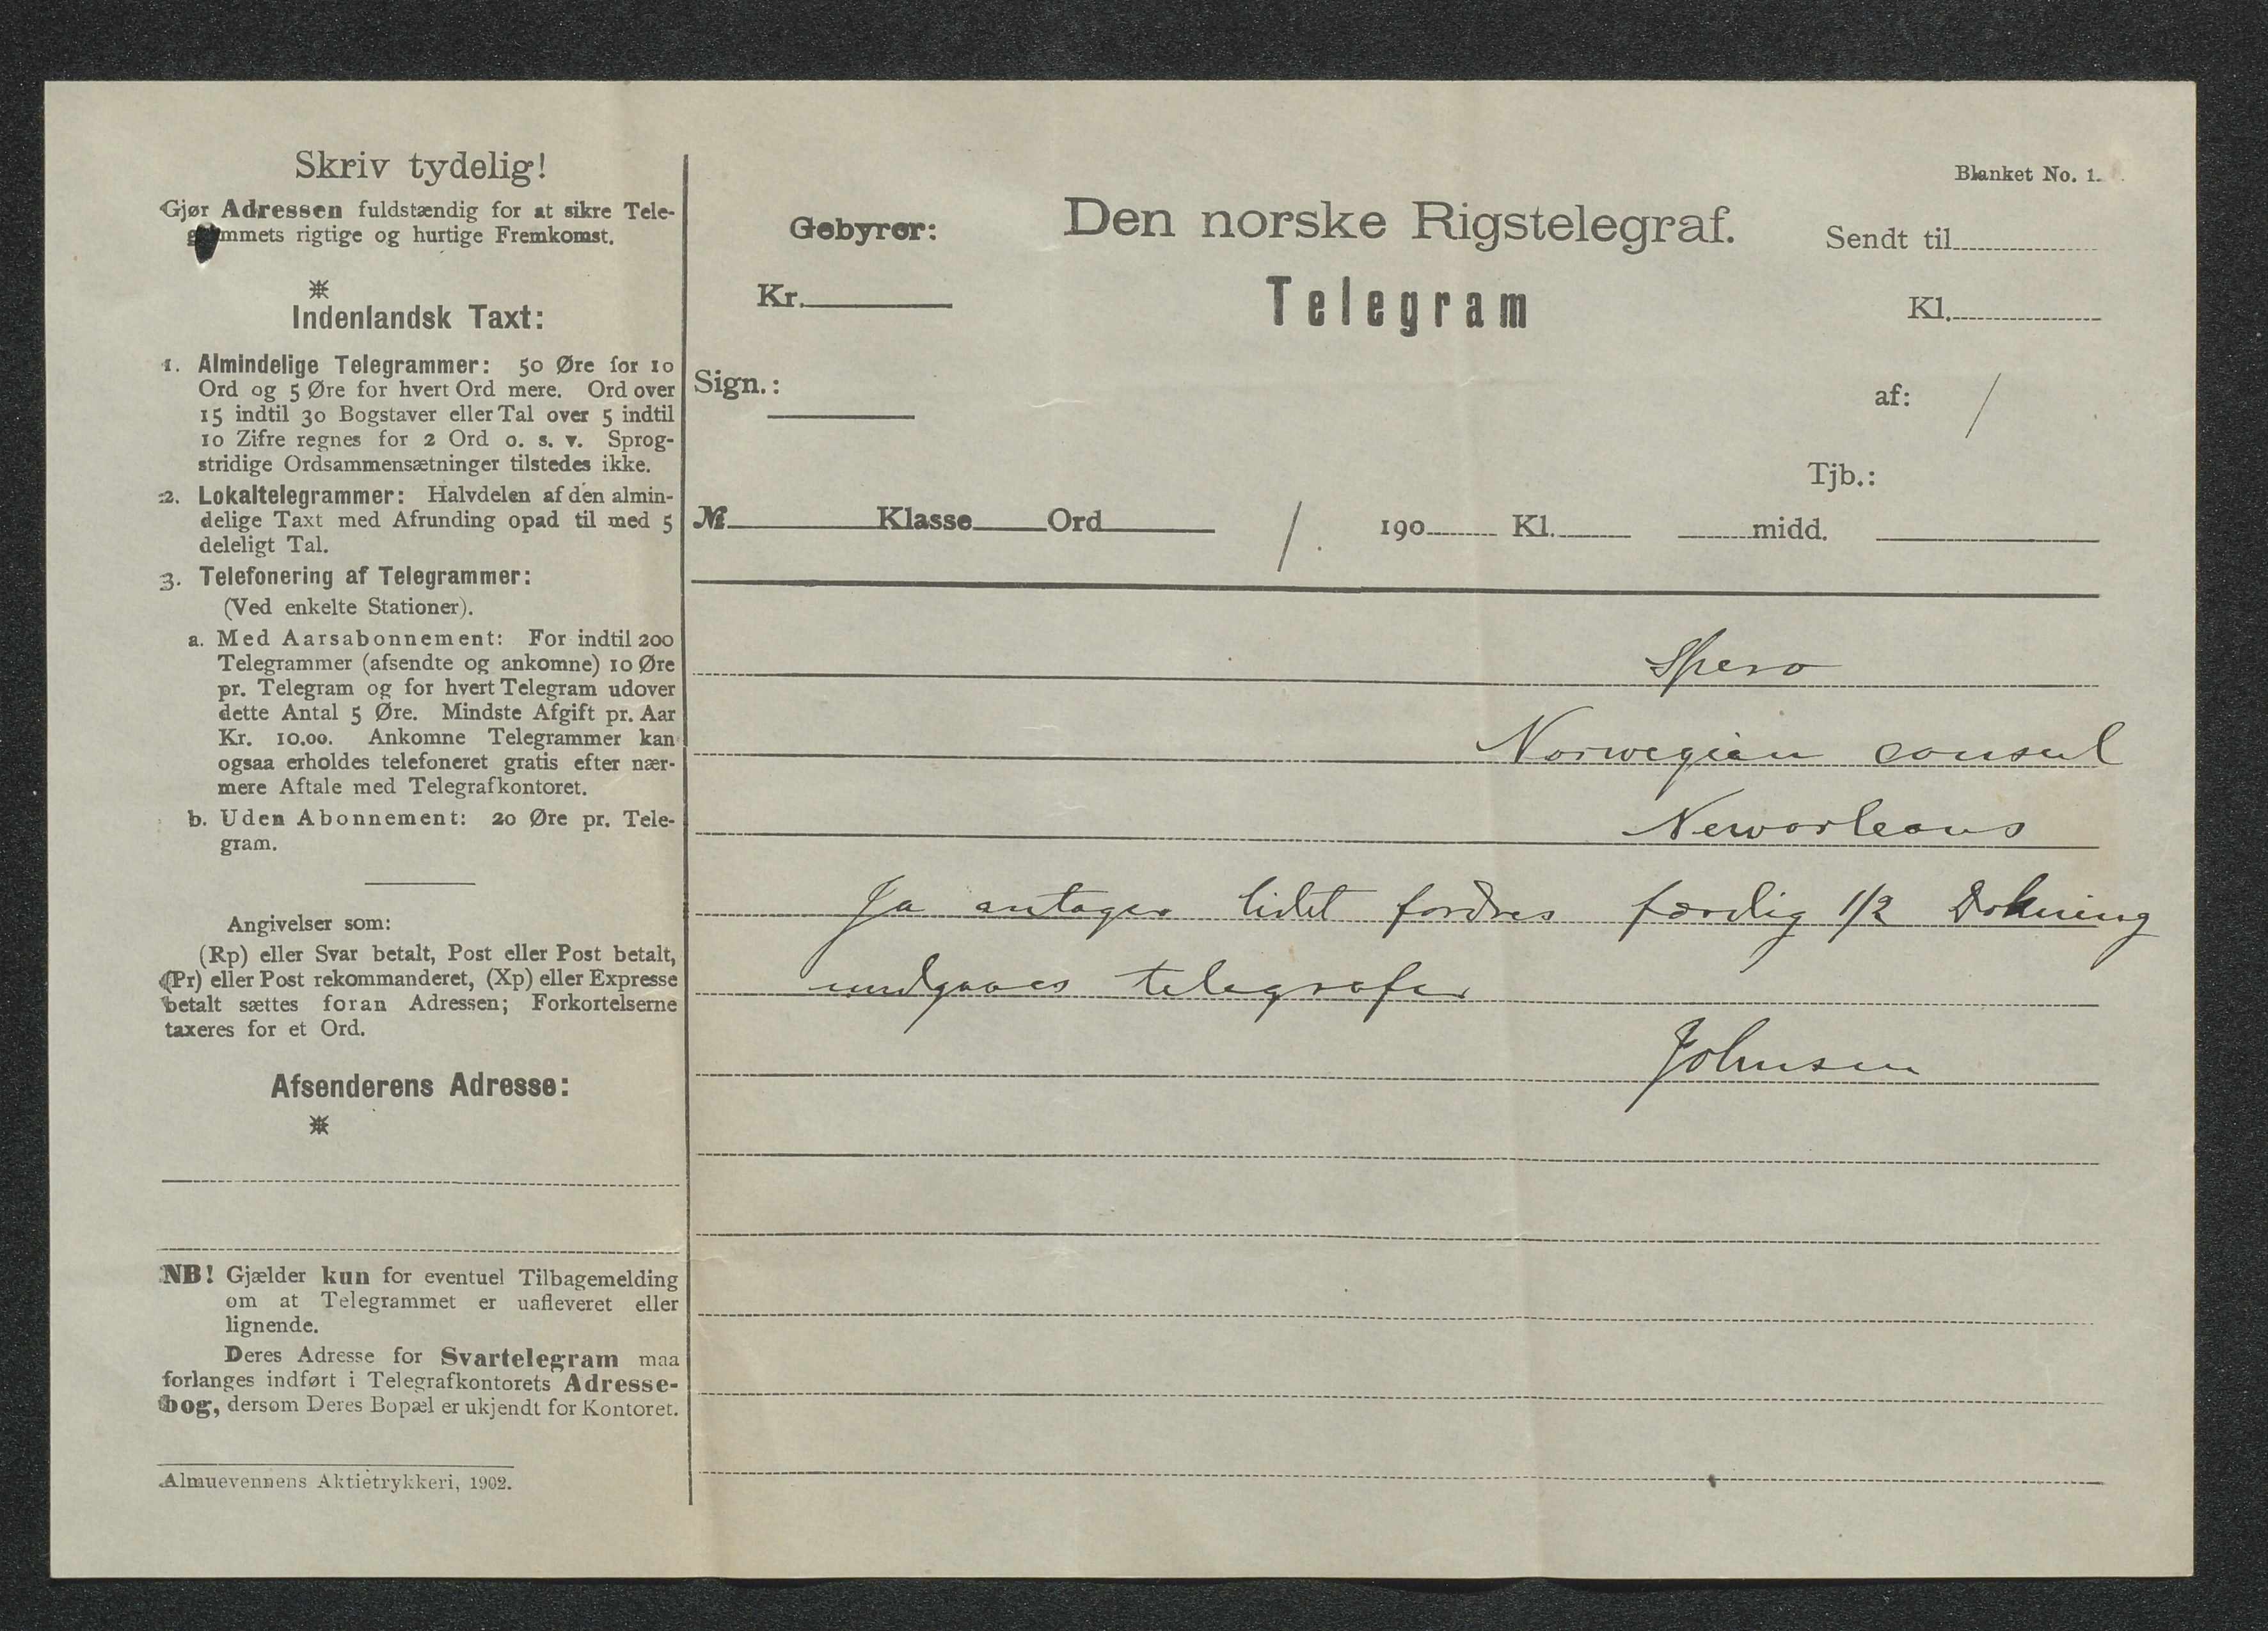 Skriv tydelig!
Gjør Adressen fuldstændig for at sikre Tele-
grammets rigtige og hurtige Fremkomst.
Indenlandsk Taxt:
1. Almindelige Telegrammer: 50 Øre for 10
Ord og 5 Øre for hvert Ord mere. Ord over
15 indtil 30 Bogstaver eller Tal over 5 indtil
10 Zifre regnes for 2 Ord o. s. v. Sprog-
stridige Ordsammensætninger tilstedes ikke.
2. Lokaltelegrammer: Halvdelen af den almin-
delige Taxt med Afrunding opad til med 5
deleligt Tal.
3. Telefonering af Telegrammer:
(Ved enkelte Stationer).
a. Med Aarsabonnement: For indtil 200
Telegrammer (afsendte og ankomne) 10 Øre
pr. Telegram og for hvert Telegram udover
dette Antal 5 Øre. Mindste Afgift pr. Aar
Kr. 10.00. Ankomne Telegrammer kan
ogsaa erholdes telefoneret gratis efter nær-
mere Aftale med Telegrafkontoret.
b. Uden Abonnement: 20 Øre pr. Tele-
gram.
Angivelser som:
(Rp) eller Svar betalt, Post eller Post betalt,
(Pr) eller Post rekommanderet, (Xp) eller Expresse
betalt sættes foran Adressen; Forkortelserne
taxeres for et Ord.
Afsenderens Adresse:
NB! Gjælder kun for eventuel Tilbagemelding
om at Telegrammet er uafleveret eller
lignende.
Deres Adresse for Svartelegram maa
forlanges indført i Telegrafkontorets Adresse-
bog, dersom Deres Bopæl er ukjendt for Kontoret.
Almuevennens Aktietrykkeri, 1902.
Blanket No. 1.
Gebyrer: Den norske Rigstelegraf. Sendt til
Kr. Telegram Kl.
Sign.: af: /
Tjb.:
№ Klasse Ord / 190 Kl. midd.
Spero
Norwegian consul
Neworleans
Ja antager lidet fordres færdig 1/2 Dokning
undgaaes telegrafer
Johnsen